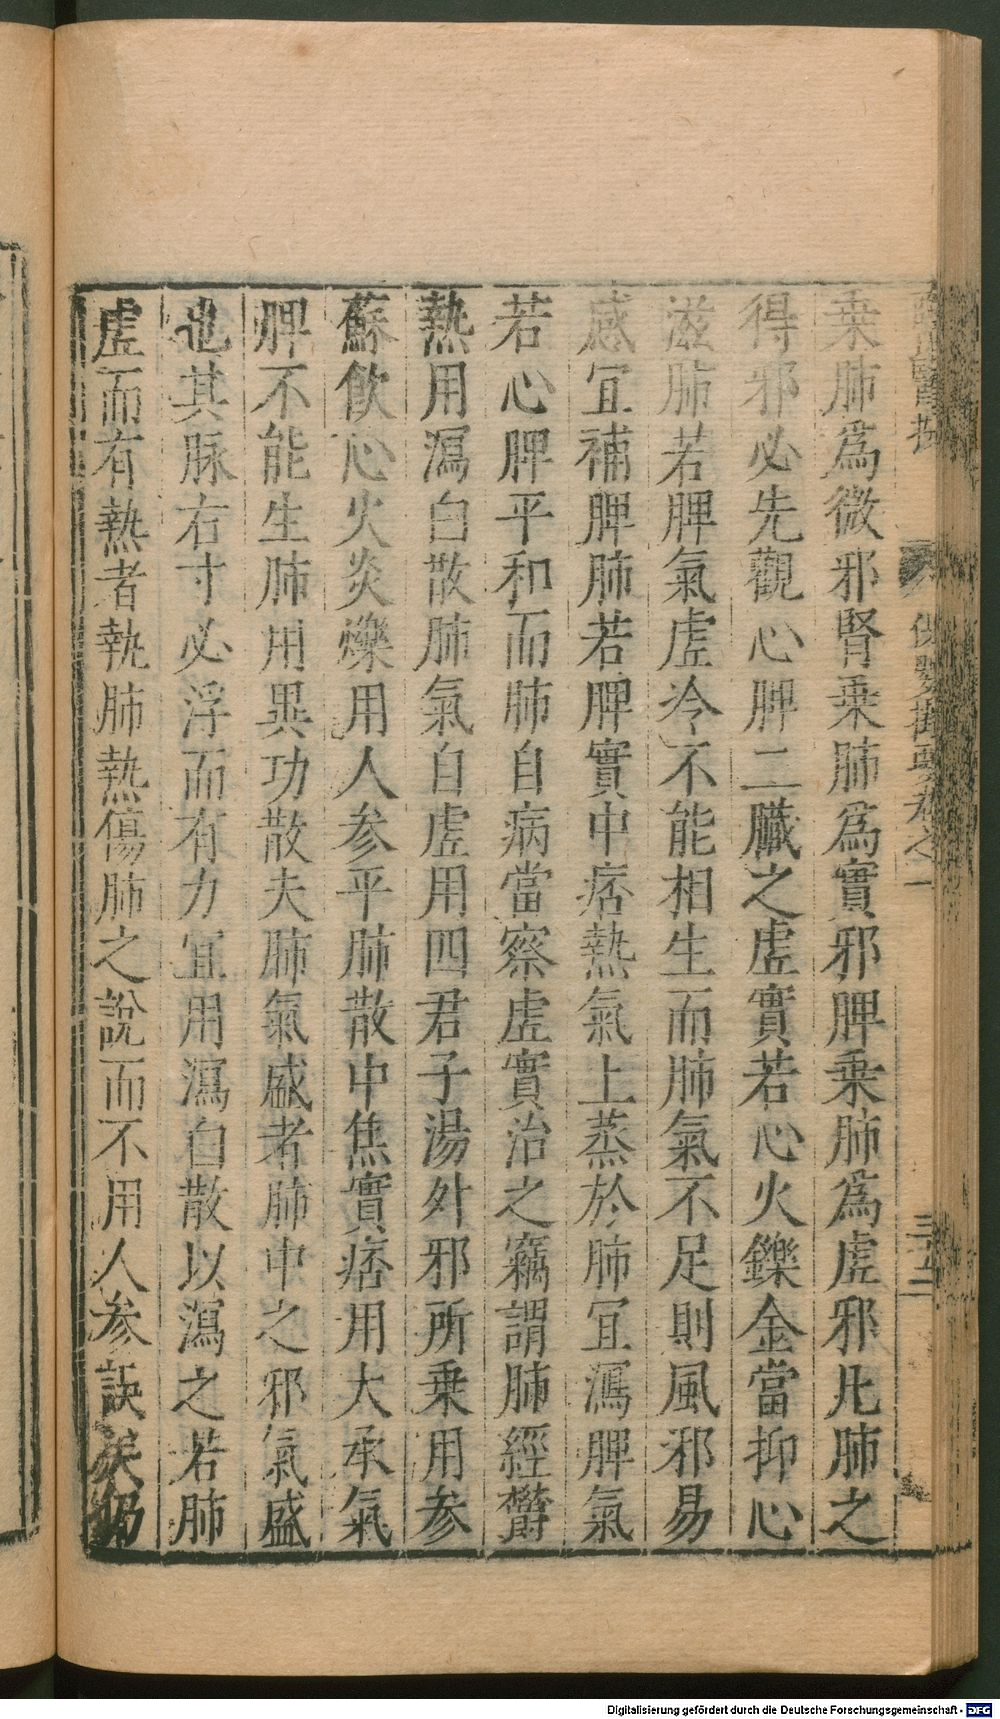 乗肺爲微邪腎乗肺爲實邪脾乗肺爲虚邪凡肺之
得邪必先觀心脾二臟之虚實若心火鑠金當抑心
滋肺若脾氣虚冷不能相生而肺氣不足則風邪易
感宜補脾肺若脾實中痞熱氣上蒸於肺宜瀉脾氣
若心脾平和而肺自病當察虚實治之竊謂肺經欝
熱用瀉白散肺氣自虚用四君子湯外邪所乗用参
蘇飲心火炎爍用人参平肺散中焦實痞用大承氣
脾不能生肺用異功散夫肺氣盛者肺中之邪氣盛
也其脉右寸必浮而有力宜用瀉白散以瀉之若肺
虚而有熱者執肺熱傷肺之說而不用人参誤矣仍
保嬰撮要卷之一
三五
Digitalisierung gefördert durch die Deutsche Forschungsgemeinschaft - DFG